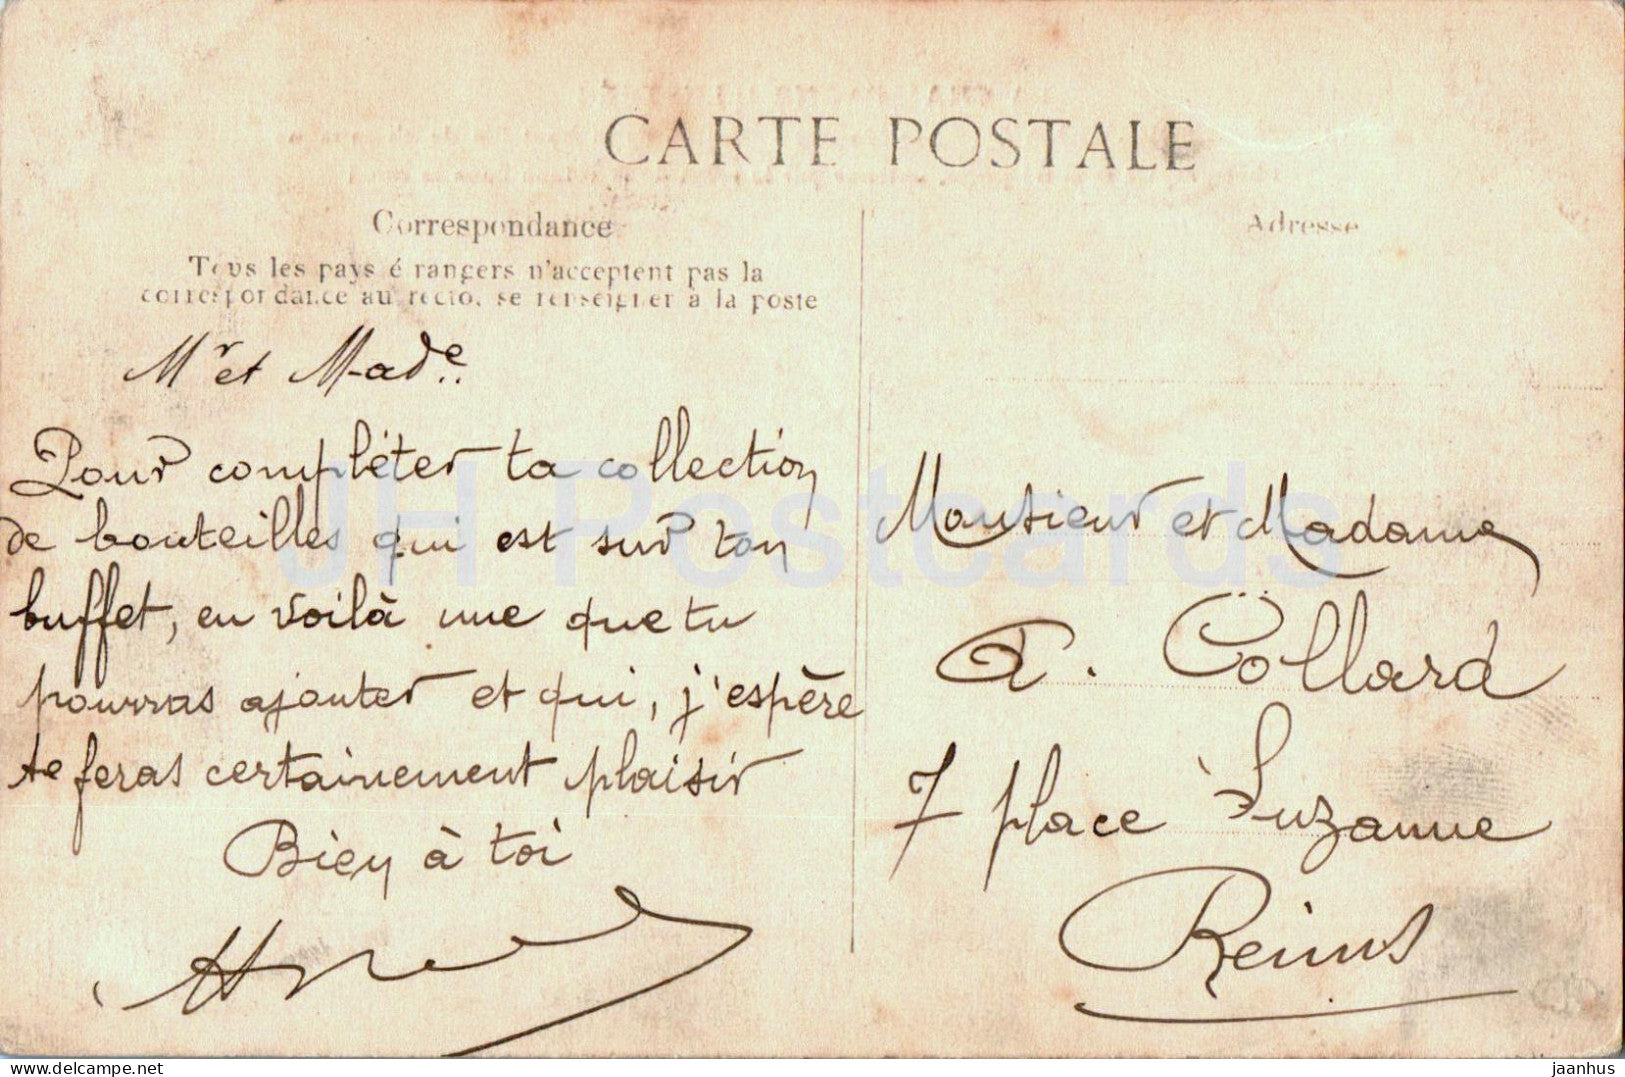 CARTE POSTALE
Correspondance
Tous les pays étrangers n'acceptent pas la
correspondance au recto, se renseigner à la poste
Mr et Made
Pour compléter ta collection
de bouteilles qui est sur ton
buffet, en voilà une que tu
pourras ajouter et qui, j'espère
te feras certainement plaisir
Bien à toi
Adresse
Monsieur et Madame
A. Collard
7 place Suzanne
Reims
JH Postcards
delcampe.net
jaanhus